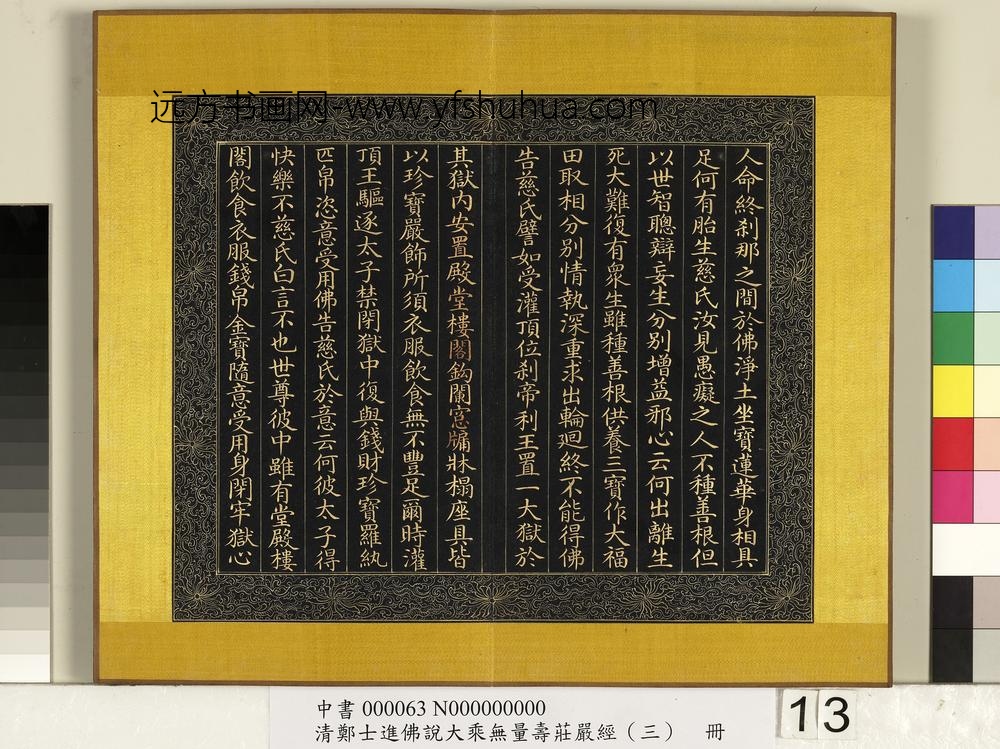 远方书画网-www.yfshuhua.com
人命終刹那之間於佛淨土坐寶蓮華身相具
足何有胎生慈氏汝見愚癡之人不種善根但
以世智聰辯妄生分別增益邪心云何出離生
死大難復有衆生雖種善根供養三寶作大福
田取相分別情執深重求出輪迴終不能得佛
告慈氏譬如受灌頂位刹帝利王置一大獄於
其獄內安置殿堂樓閣鈎闌窓牖牀榻座具皆
以珍寶嚴飾所須衣服飲食無不豐足爾時灌
頂王驅逐太子禁閉獄中復與錢財珍寶羅紈
匹帛恣意受用佛告慈氏於意云何彼太子得
快樂不慈氏白言不也世尊彼中雖有堂殿樓
閣飲食衣服錢帛金寶隨意受用身閉牢獄心
中書 000063 N000000000
清鄭士進佛說大乘無量壽莊嚴經（三） 冊
13